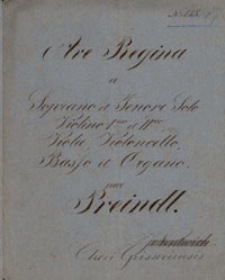 Ave Regina
a
Soprano et Tenore Solo
Violino Imo et IIdo
Viola, Violoncello,
Basso et Organo.
Preindl.
Chori